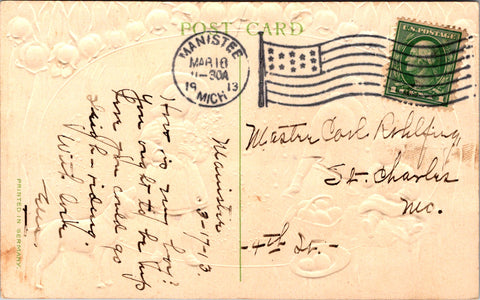 POST CARD
MANISTEE
MAR 18
11-30A
19 13
MICH
U.S. POSTAGE
Manistee
3-17-13.
How is my boy?
You ought to be up
here you could go
sleigh-riding.
With love
Master Carl Rohlfing
St. Charles
Mo.
-4th St.-
PRINTED IN GERMANY